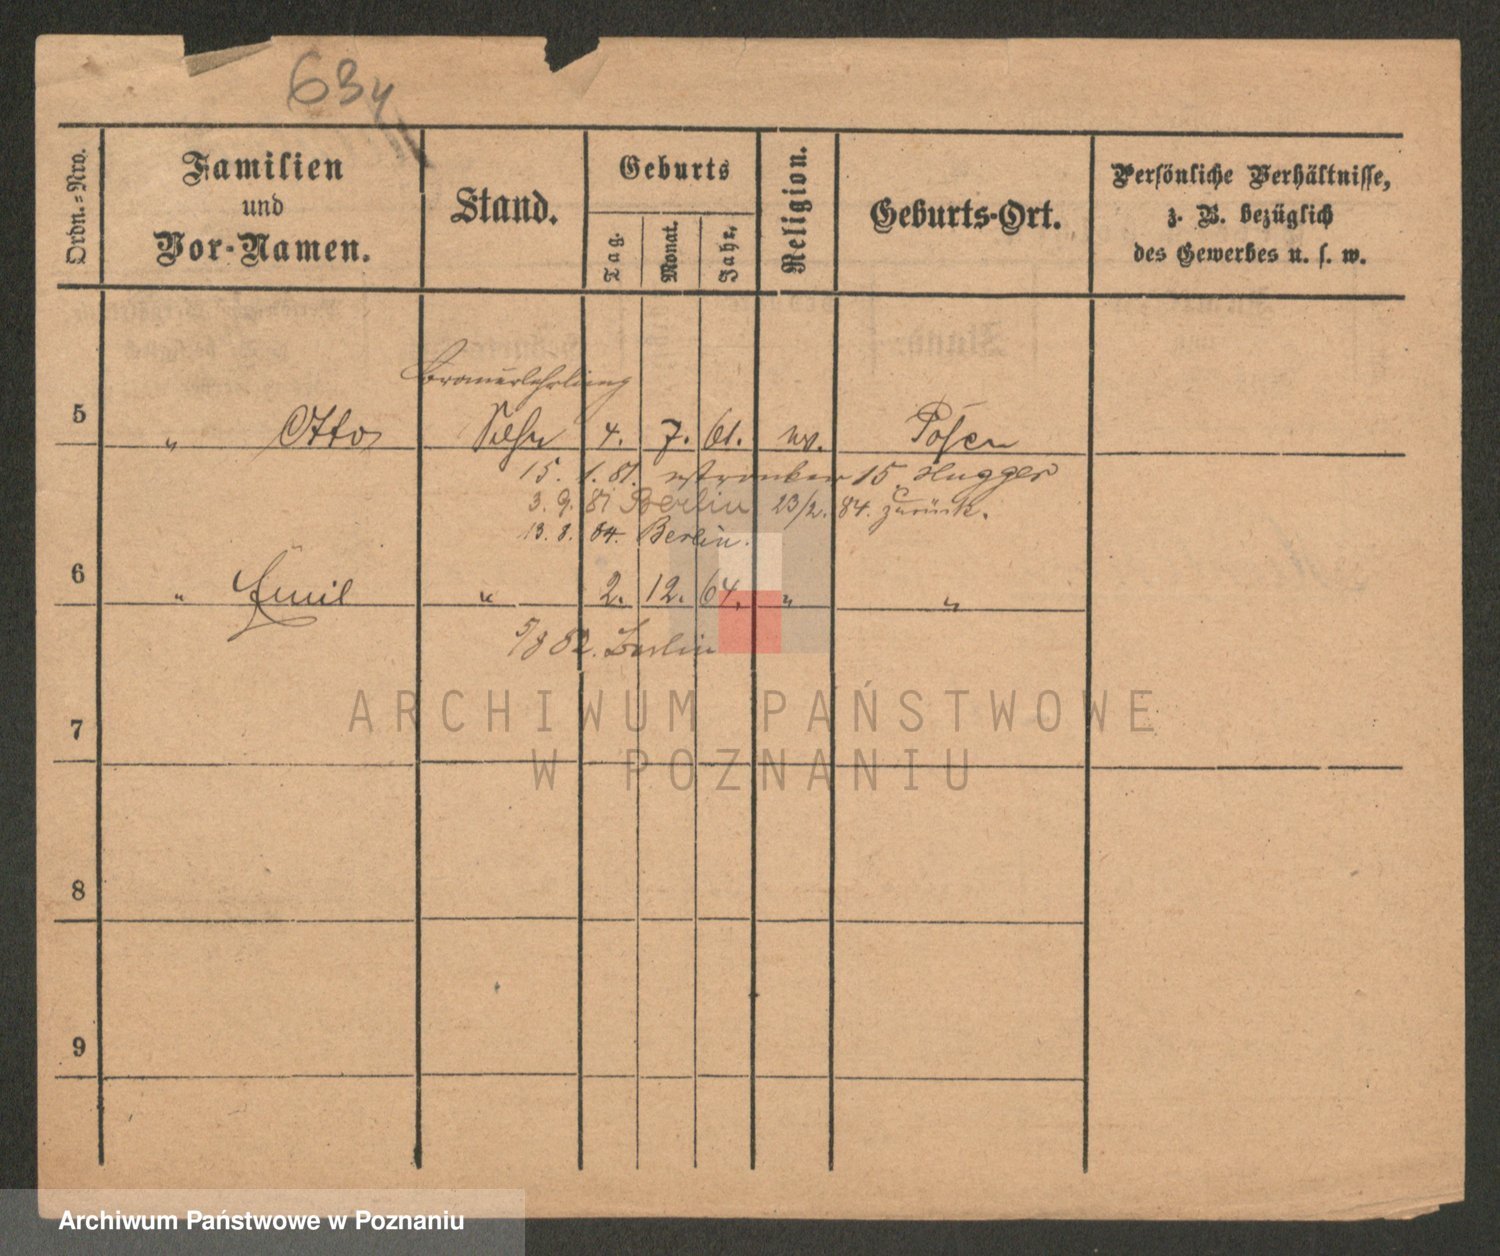 634
Ordn.-Nro.
Familien
und
Vor-Namen.
Stand.
Geburts
Tag.
Monat.
Jahr.
Religion.
Geburts-Ort.
Persönliche Verhältnisse,
z. B. bezüglich
des Gewerbes u. s. w.
Brauerlehrling
5 " Otto Sohn 4. 7. 61. ev. Posen
15. 1. 81. 15.
3. 9. 81 Berlin 23/2. 84. zurück.
13. 8. 84. Berlin.
6 " Emil " 2. 12. 64. " "
5/8 82. Berlin
7
8
9
ARCHIWUM PAŃSTWOWE
W POZNANIU
Archiwum Państwowe w Poznaniu